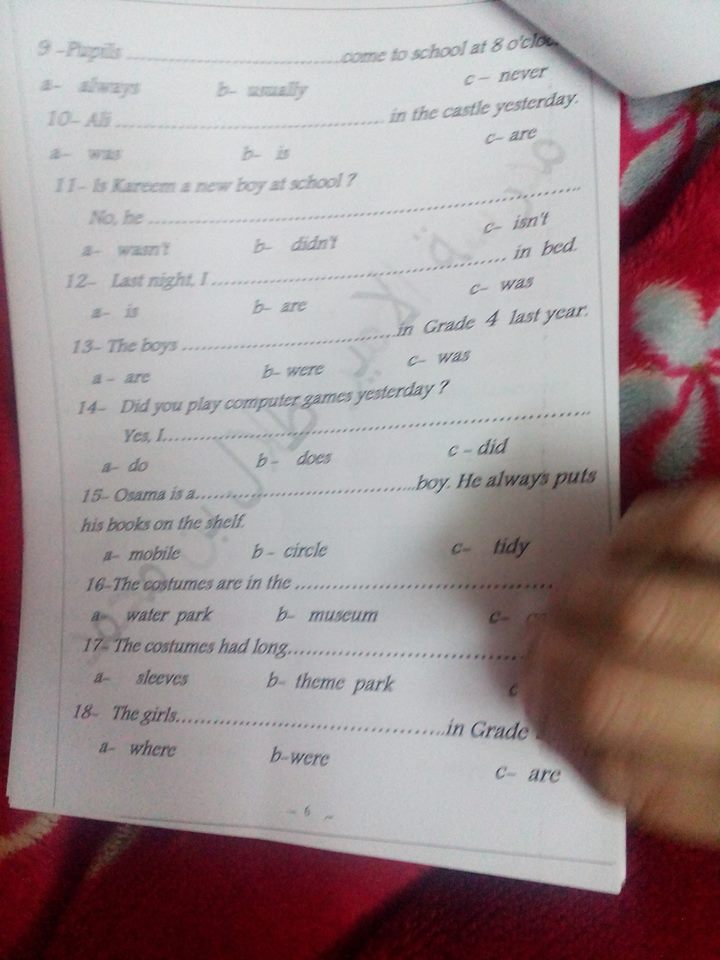 9 -Pupils ........................................come to school at 8
a- always b- usually c - never
10- Ali ........................................ in the castle yesterday.
a- was b- is c- are
11- Is Kareem a new boy at school ?
No, he ........................................
a- wasn't b- didn't c- isn't
12- Last night, I ........................................ in bed.
a- is b- are c- was
13- The boys ........................................in Grade 4 last year.
a - are b- were c- was
14- Did you play computer games yesterday ?
Yes, I........................................
a- do b - does c - did
15- Osama is a........................................boy. He always puts
his books on the shelf.
a- mobile b - circle c- tidy
16-The costumes are in the ........................................
a- water park b- museum c-
17- The costumes had long........................................
a- sleeves b- theme park c
18- The girls........................................in Grade
a- where b-were c- are
- 6 -